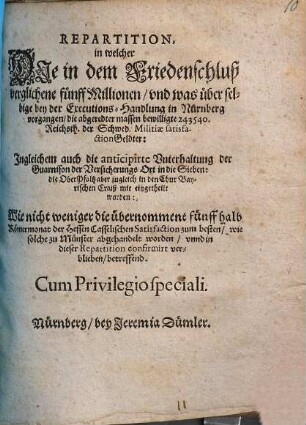 REPARTITION,
in welcher
DJe in dem Friedenschluß
verglichene fünff Millionen / vnd was über sel-
bige bey der Executions-Handlung in Nürnberg
vorgangen / die abgeredter massen bewilligte 243540.
Reichsth. der Schwed. Militiæ satisfa-
ction Geldter:
Jngleichem auch die anticipirte Vnterhaltung der
Guarnison der Versicherungs Ort in die Sieben:
die Ober Pfaltz aber zugleich in den Chur Bay-
rischen Craiß mit eingetheilt
worden:
Wie nicht weniger die übernommene fünff halb
Römermonat der Hessen Casselischen Satisfaction zum besten / wie
solche zu Münster abgehandelt worden / vnnd in
dieser Repartition confirmirt ver-
blieben / betreffend.
Cum Privilegio speciali.
Nürnberg / bey Jeremia Dümler.